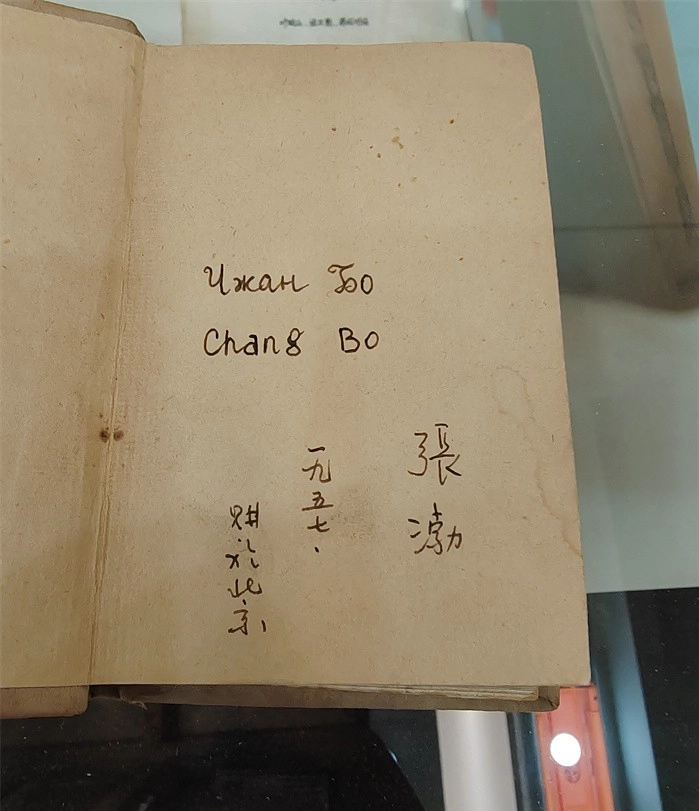 Чжан Бо
Chang Bo
張渤
一九五七.
購於北京